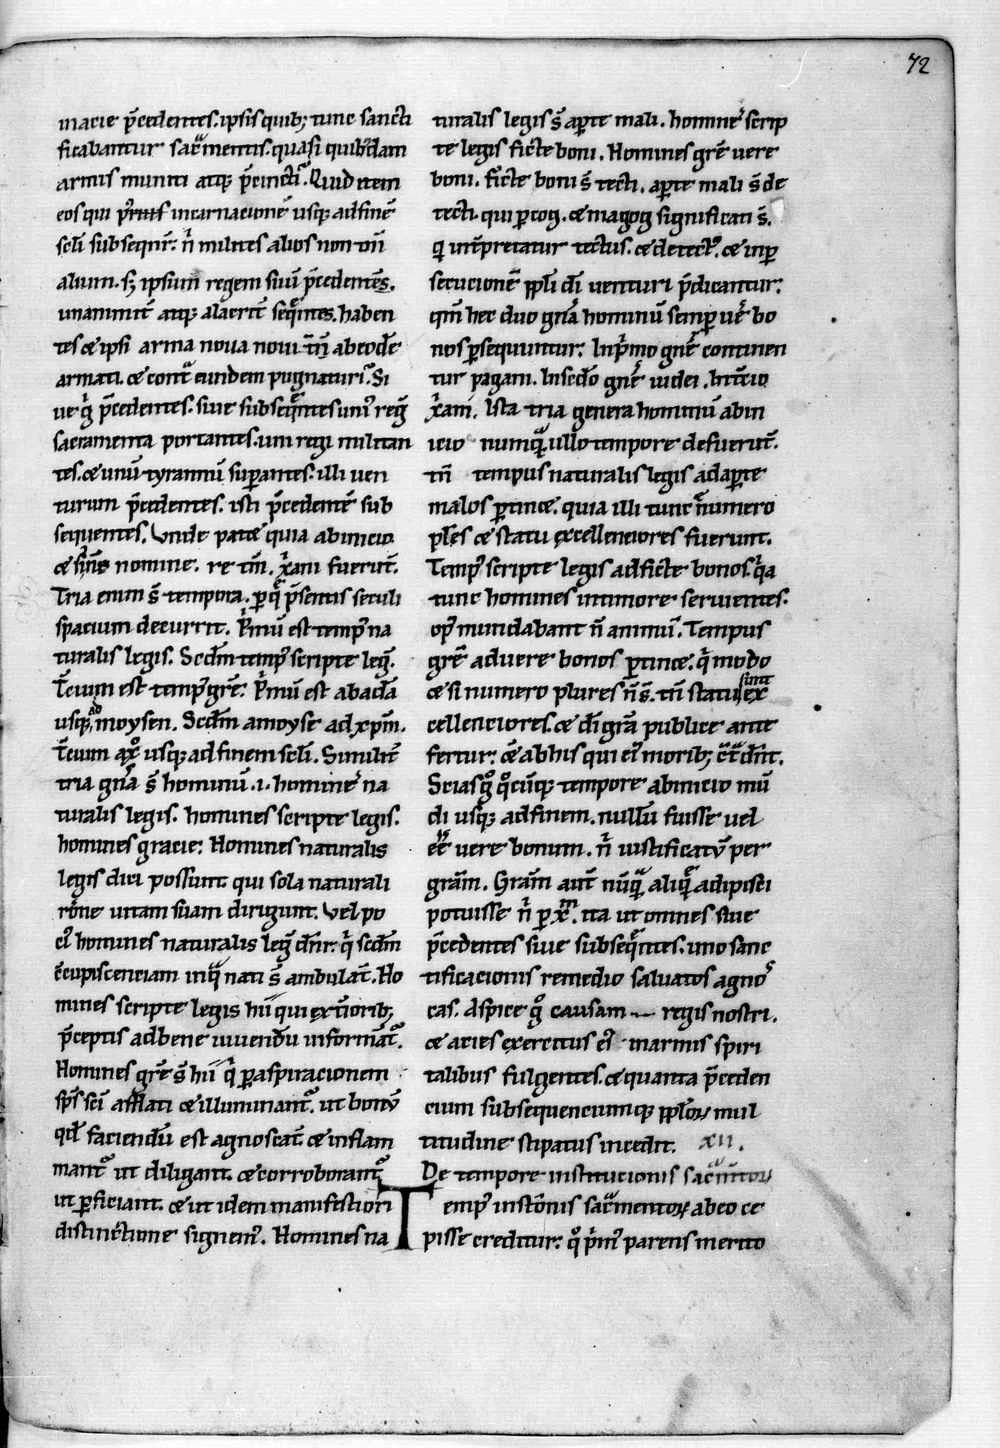 72
macie p̄cedentes. ipsis quib; tunc sancti
ficabantur sac̄mentis. quasi quib'dam
armis muniti atq; p̄cincti. Quid item
eos qui incarnacionē usq; ad finē
sc̄li subsequn̄t. n̄ milites alios non
alium. s; ipsum regem suū p̄cedentes.
unanimit̄ atq; alacrit̄ seq̄ntes. haben
tes & ipsi arma noua noui tn̄ ab eodē
armati. & cont̄ eundem pugnaturi. Si
ue g̊ p̄cedentes. siue subseq̄ntes uni' reḡ
sacramenta portantes. uni regi militan
tes. & unū tyrannū supantes. illi uen
turum p̄cedentes. isti p̄cedentē sub
sequentes. Vnde pat& quia ab inicio
& nomine. re tm̄. x̄ani fuerūt.
Tria enim s̄ tempora. p̄ q̄ p̄sentis seculi
spacium decurrit. P'mū est temp' na
turalis legis. Scd̄m temp' scripte leḡ.
T̄cium est temp' grē. P'mū est ab adā
usq; ad moysen. Scd̄m a moyse ad xp̄m.
T̄cium a x̄o usq; ad finem sc̄li. Similit̄
tria gn̄a s̄ hominū .i. homines na
turalis legis. homines scripte legis.
homines gracie. Homines naturalis
legis dici possunt qui sola naturali
rōne uitam suam dirigunt. Vel po
ci' homines naturalis leḡ dn̄r. q̄ scd̄m
c̄cupiscenciam in q̄ nati s̄ ambulāt. Ho
mines scripte legis hii qui ext̄iorib;
p̄ceptis ad bene uiuendū informāt'.
Homines grē s̄ hii q̄ p̄ aspiracionem
sp̄s sc̄i afflati & illuminant'. ut bonū
qd̄ faciendū est agnoscāt & inflam
mant' ut diligant. & corroborant'
ut p̄ficiant. & ut idem manifestiori
distinctione signem'. Homines na
turalis legis s̄ apte mali. homines scrip
te legis ficte boni. Homines grē uere
boni. ficte boni s̄ tecti. apte mali s̄ de
tecti. qui p̄ gog. & magog significati s̄.
q̄ int̄pretatur tectus. & detect'. & in p
secucionē pp̄li di uenturi p̄dicantur.
qm̄ hec duo gn̄a hominū semp uē bo
nos p̄sequuntur. In p'mo gn̄e continen
tur pagani. In scd̄o gn̄e iudei. In t̄cio
x̄ani. Ista tria genera hominū ab in
icio numq̄ ullo tempore defuerūt.
tn̄ tempus naturalis legis ad apte
malos p̄tin&. quia illi tunc & numero
pl̄es & statu excellenciores fuerunt.
Temp' scripte legis ad ficte bonos q̄a
tunc homines in timore seruientes.
op' mundabant n̄ animū. Tempus
grē ad uere bonos p̄tin&. q̄ modo
& si numero plures n̄ s̄. tn̄ statu sunt ex
cellenciores. & di grā publice ante
fertur. & ab his qui ei' morib; 
Scias g̊ q̊cūq; tempore ab inicio mū
di usq; ad finem. nullū fuisse uel
e͞e uere bonum. n̄ iustificatū per
grām. Grām aut̄ nūq̄ aliq̄ adipisci
potuisse n̄ p̄ x̄m. ita ut omnes siue
p̄cedentes siue subseq̄ntes. uno sanc
tificacionis remedio saluatos agnos
cas. Aspice g̊ causam regis nostri.
& acies exercitus ei' in armis spiri
talibus fulgentes. & quanta p̄ceden
cium subsequenciumq; pp̄lor̄ mul
titudine stipatus incedit. xII.
De tempore institucionis sac̄mentor̄
Temp' instōnis sac̄mentor̄ ab eo ce
pisse creditur. q̊ p'm' parens merito